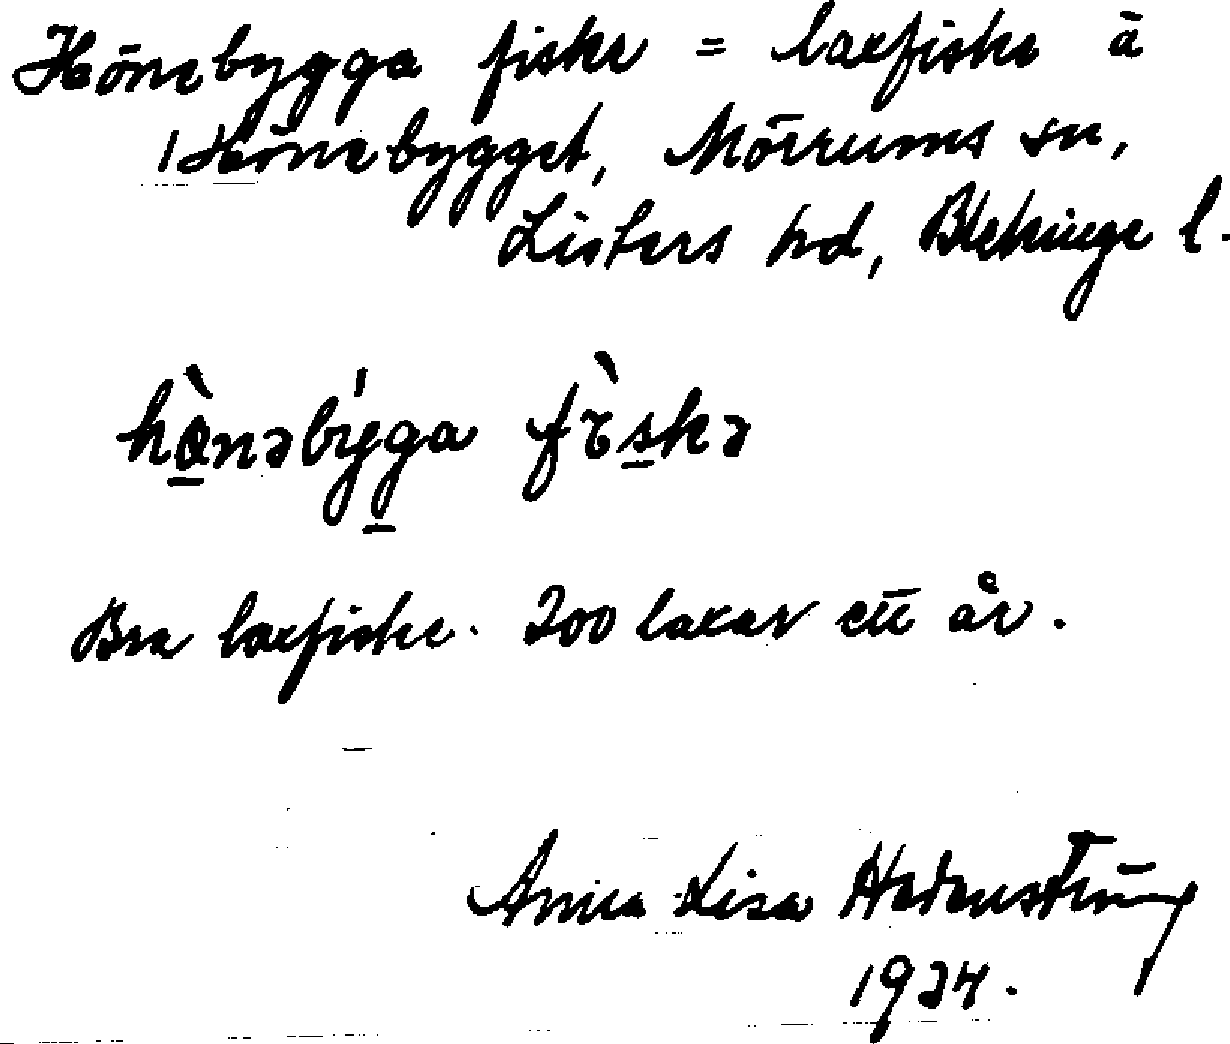 Hönebygga fiske = laxfiske å
Hönebygget, Mörrums sn,
Listers hd, Blekinge l.
hò̱nəbýg̱a fɪ̀s̱kə
Bra laxfiske. 200 laxar ett år.
Anna Lisa Hedenström
1924.